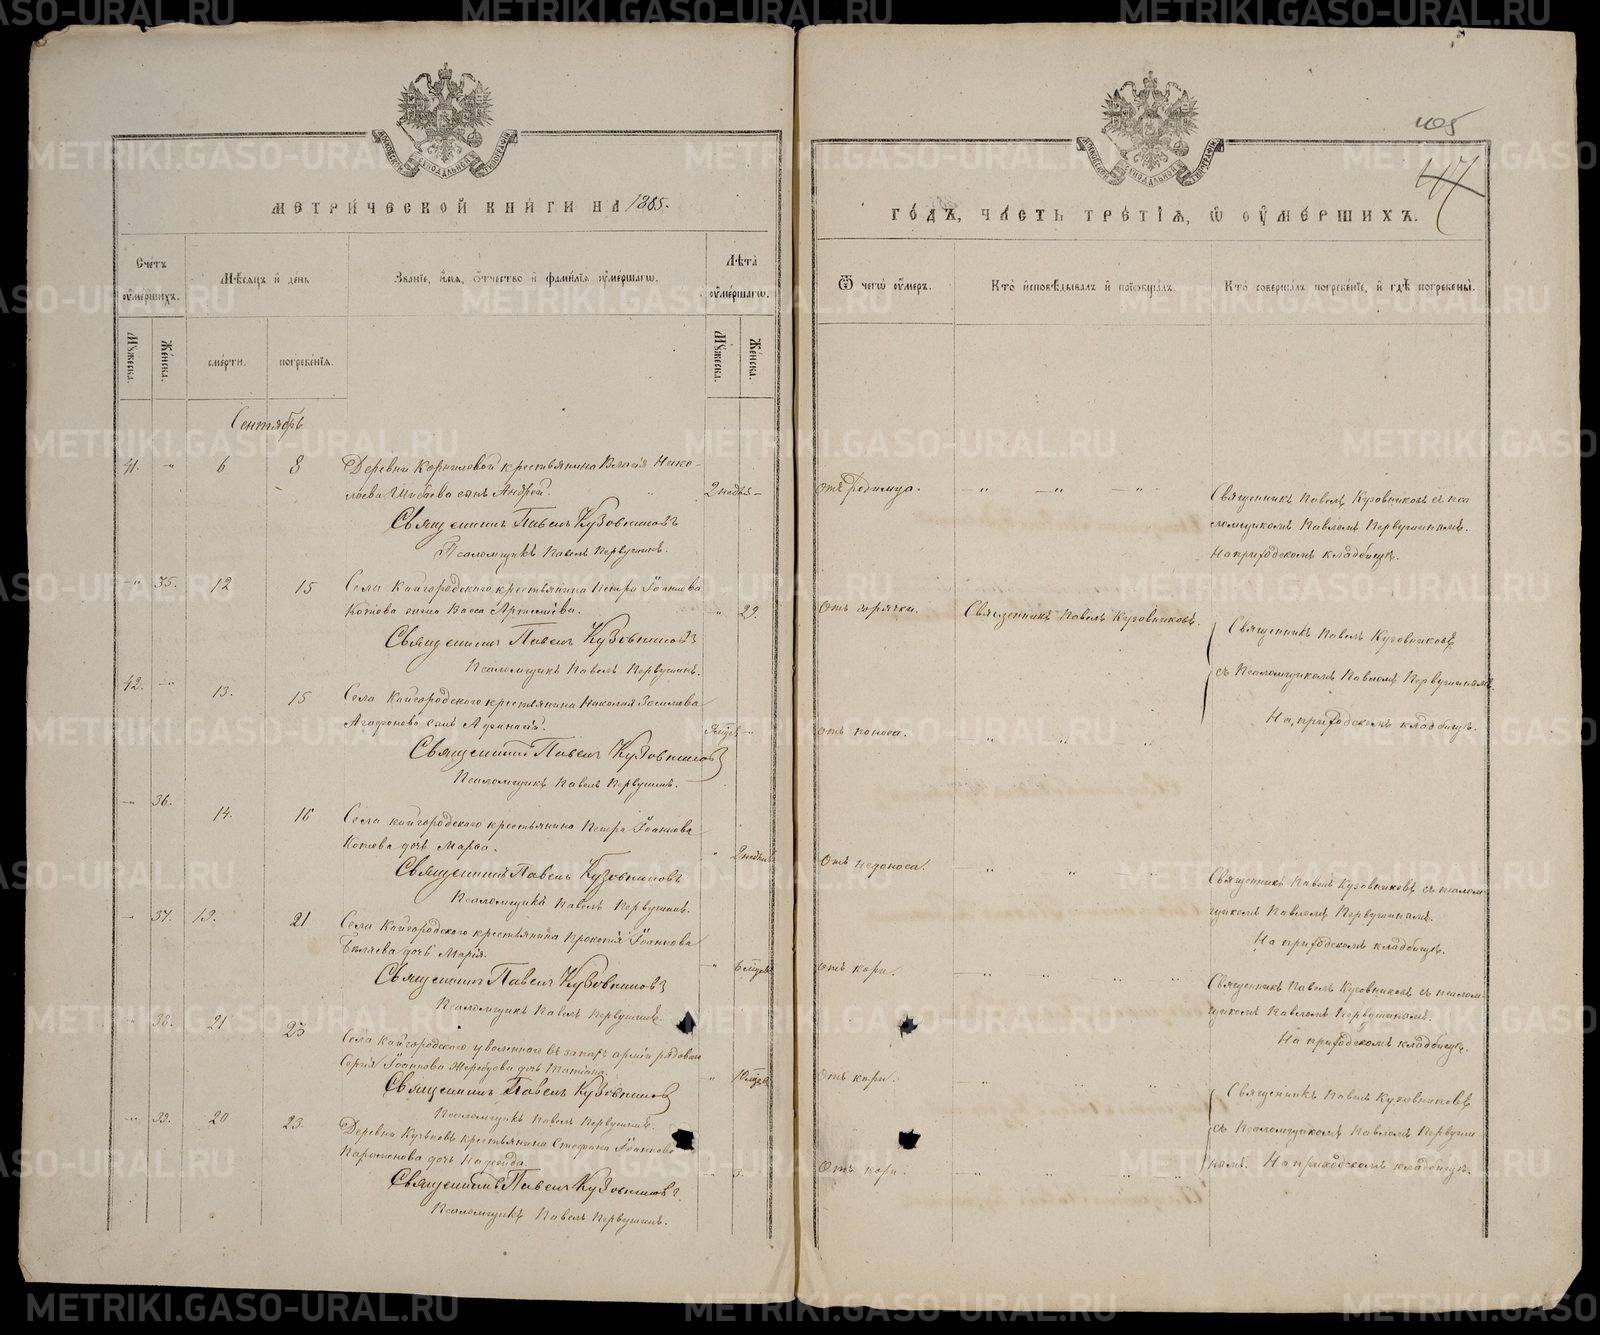 405
447
МЕТРИЧЕСКОЙ КНИГИ НА 1885.
Счетъ оумершихъ.
Мѣсяцъ и день
Званіе, имя, отчество и фамилія оумершагѡ.
Лѣта оумершагѡ.
Мужеска.
Женска.
смерти.
погребенія.
Мужеска.
Женска.
Сентябрь
41. " 6 8 Деревни Корниловой крестьянина Власія Нико-
лаева Шибаева сынъ Андрей. 2 недѣл –
Священникъ Павелъ Кузовниковъ
Псаломщикъ Павелъ Первушинъ.
" 35. 12 15 Села Кайгородскаго крестьянина Петра Іоаннова
Котова жена Васса Артемьева. " 29.
Священникъ Павелъ Кузовниковъ
Псаломщикъ Павелъ Первушинъ.
42. " 13. 15 Села Кайгородскаго крестьянина Николая Зосимова
Агафонова сынъ Афанасій.
Священникъ Павелъ Кузовниковъ
Псаломщикъ Павелъ Первушинъ.
" 36. 14. 16 Села Кайгородскаго крестьянина Петра Іоаннова
Котова дочь Марѳа. " 2 недѣли
Священникъ Павелъ Кузовниковъ
Псаломщикъ Павелъ Первушинъ.
" 37. 19. 21 Села Кайгородскаго крестьянина Прокопія Іоаннова
Бѣляева дочь Марія. " 6 мцев
Священникъ Павелъ Кузовниковъ
Псаломщикъ Павелъ Первушинъ.
" 38. 21 23 Села Кайгородскаго уволеннаго въ запасъ арміи рядоваго
Сергія Іоаннова дочь Татіана. " 10 мцев
Священникъ Павелъ Кузовниковъ
Псаломщикъ Павелъ Первушинъ.
" 39. 20 23. Деревни крестьянина Стефана Іоаннова
Парамонова дочь Надежда. " 3.
Священникъ Павелъ Кузовниковъ
Псаломщикъ Павелъ Первушинъ.
ГОДЪ, ЧАСТЬ ТРЕТІЯ, Ѡ ОУМЕРШИХЪ.
Ѿ чегѡ оумеръ.
Кто исповѣдывалъ и пріобщалъ.
Кто совершалъ погребеніе, и гдѣ погребены.
отъ родимца. " " " Священникъ Павелъ Кузовниковъ съ пса
ломщикомъ Павломъ Первушинымъ.
На приходскомъ кладбищѣ.
Отъ горячки. Священникъ Павелъ Кузовниковъ. Священникъ Павелъ Кузовниковъ
съ Псаломщикомъ Павломъ Первушинымъ.
На приходскомъ кладбищѣ.
отъ поноса. " " "
Отъ недоноса. " " " Священникъ Павелъ Кузовниковъ съ псалом-
щикомъ Павломъ Первушинымъ.
На приходскомъ кладбищѣ.
отъ кори. " " " Священникъ Павелъ Кузовниковъ съ псалом-
щикомъ Павломъ Первушинымъ.
На приходскомъ кладбищѣ.
Отъ кори. " " " Священникъ Павелъ Кузовниковъ
съ Псаломщикомъ Павломъ Первуши
нымъ. На приходскомъ кладбищѣ.
Отъ кори. " " "
METRIKI.GASO-URAL.RU